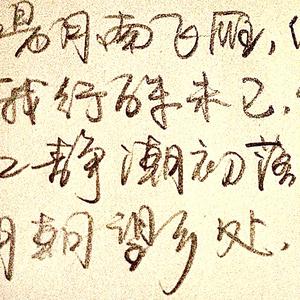 陽月南飞雁,
我行殊未已,
江静潮初落
明朝望乡处,